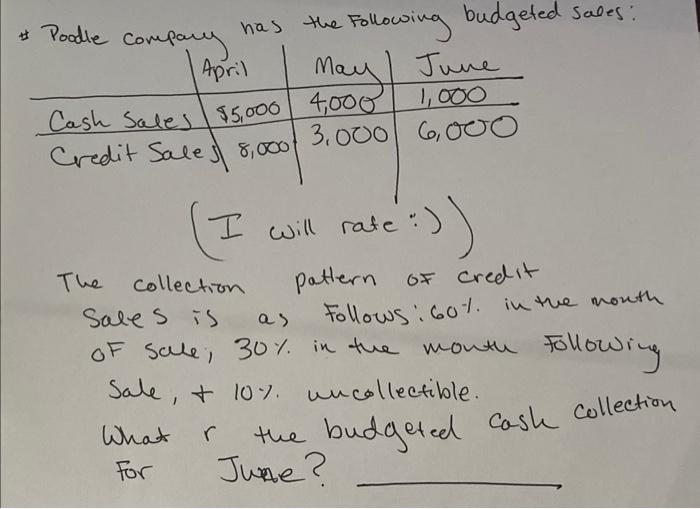 # Poodle company has the Following budgeted sales:
April May June
Cash Sales $5,000 4,000 1,000
Credit Sales 8,000 3,000 6,000
(I will rate :))
The collection pattern of credit
Sales is as Follows: 60% in the month
OF Sale, 30% in the month Following
Sale, + 10% uncollectible.
What r the budgeted cash collection
For June?